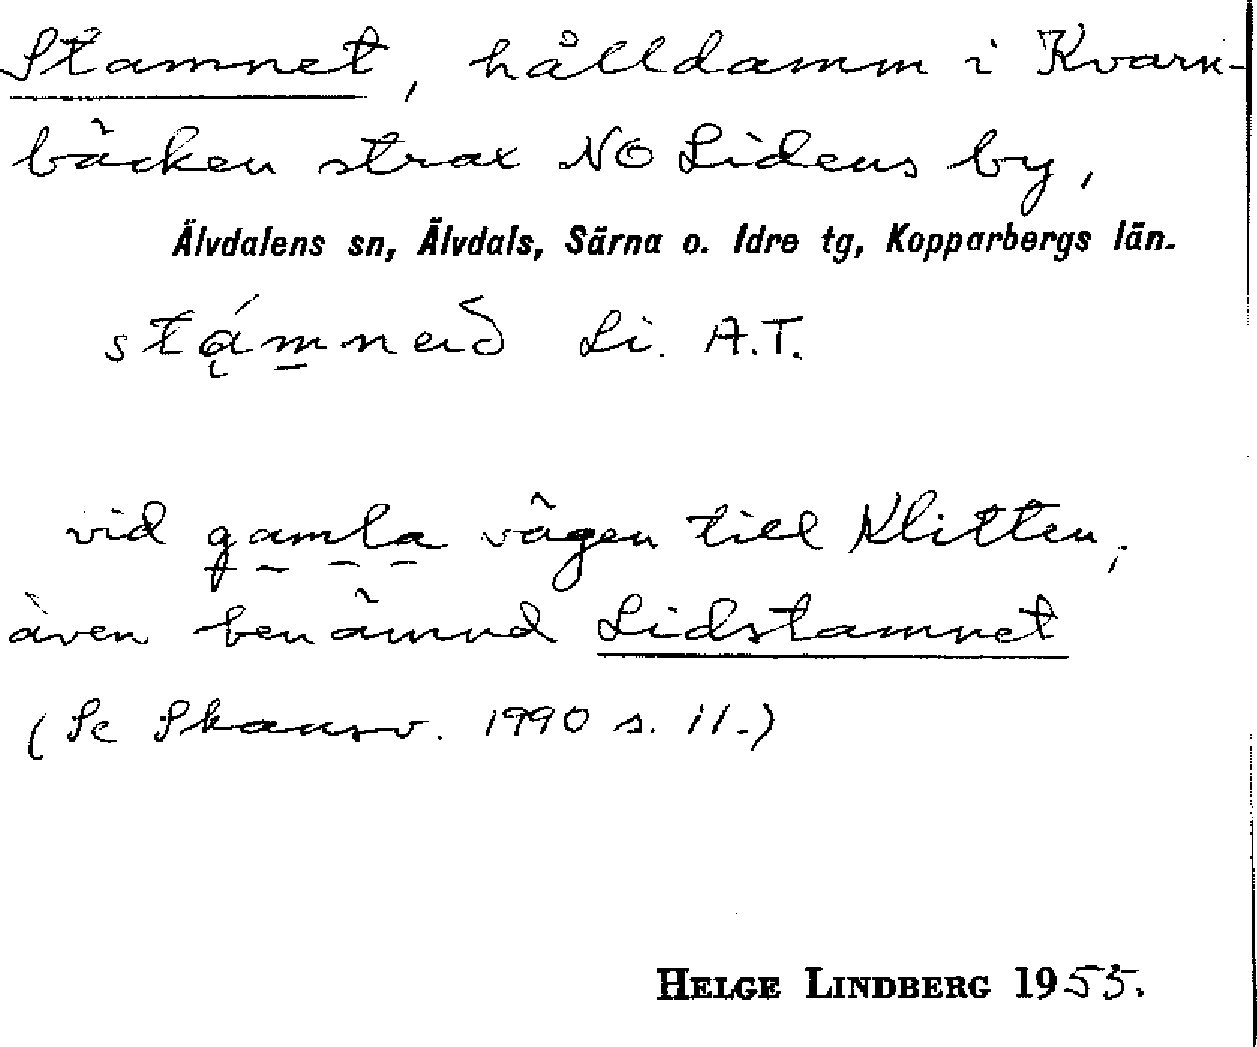 Stamnet, hålldamm i Kvarn-
bäcken strax NO Lidens by,
Älvdalens sn, Älvdals, Särna o. Idre tg, Kopparbergs län.
Li. A.T.
vid gamla vägen till Klitten,
även benämnd Lidstamnet
(Se Skansv. 1990 s. 11.)
HELGE LINDBERG 1955.